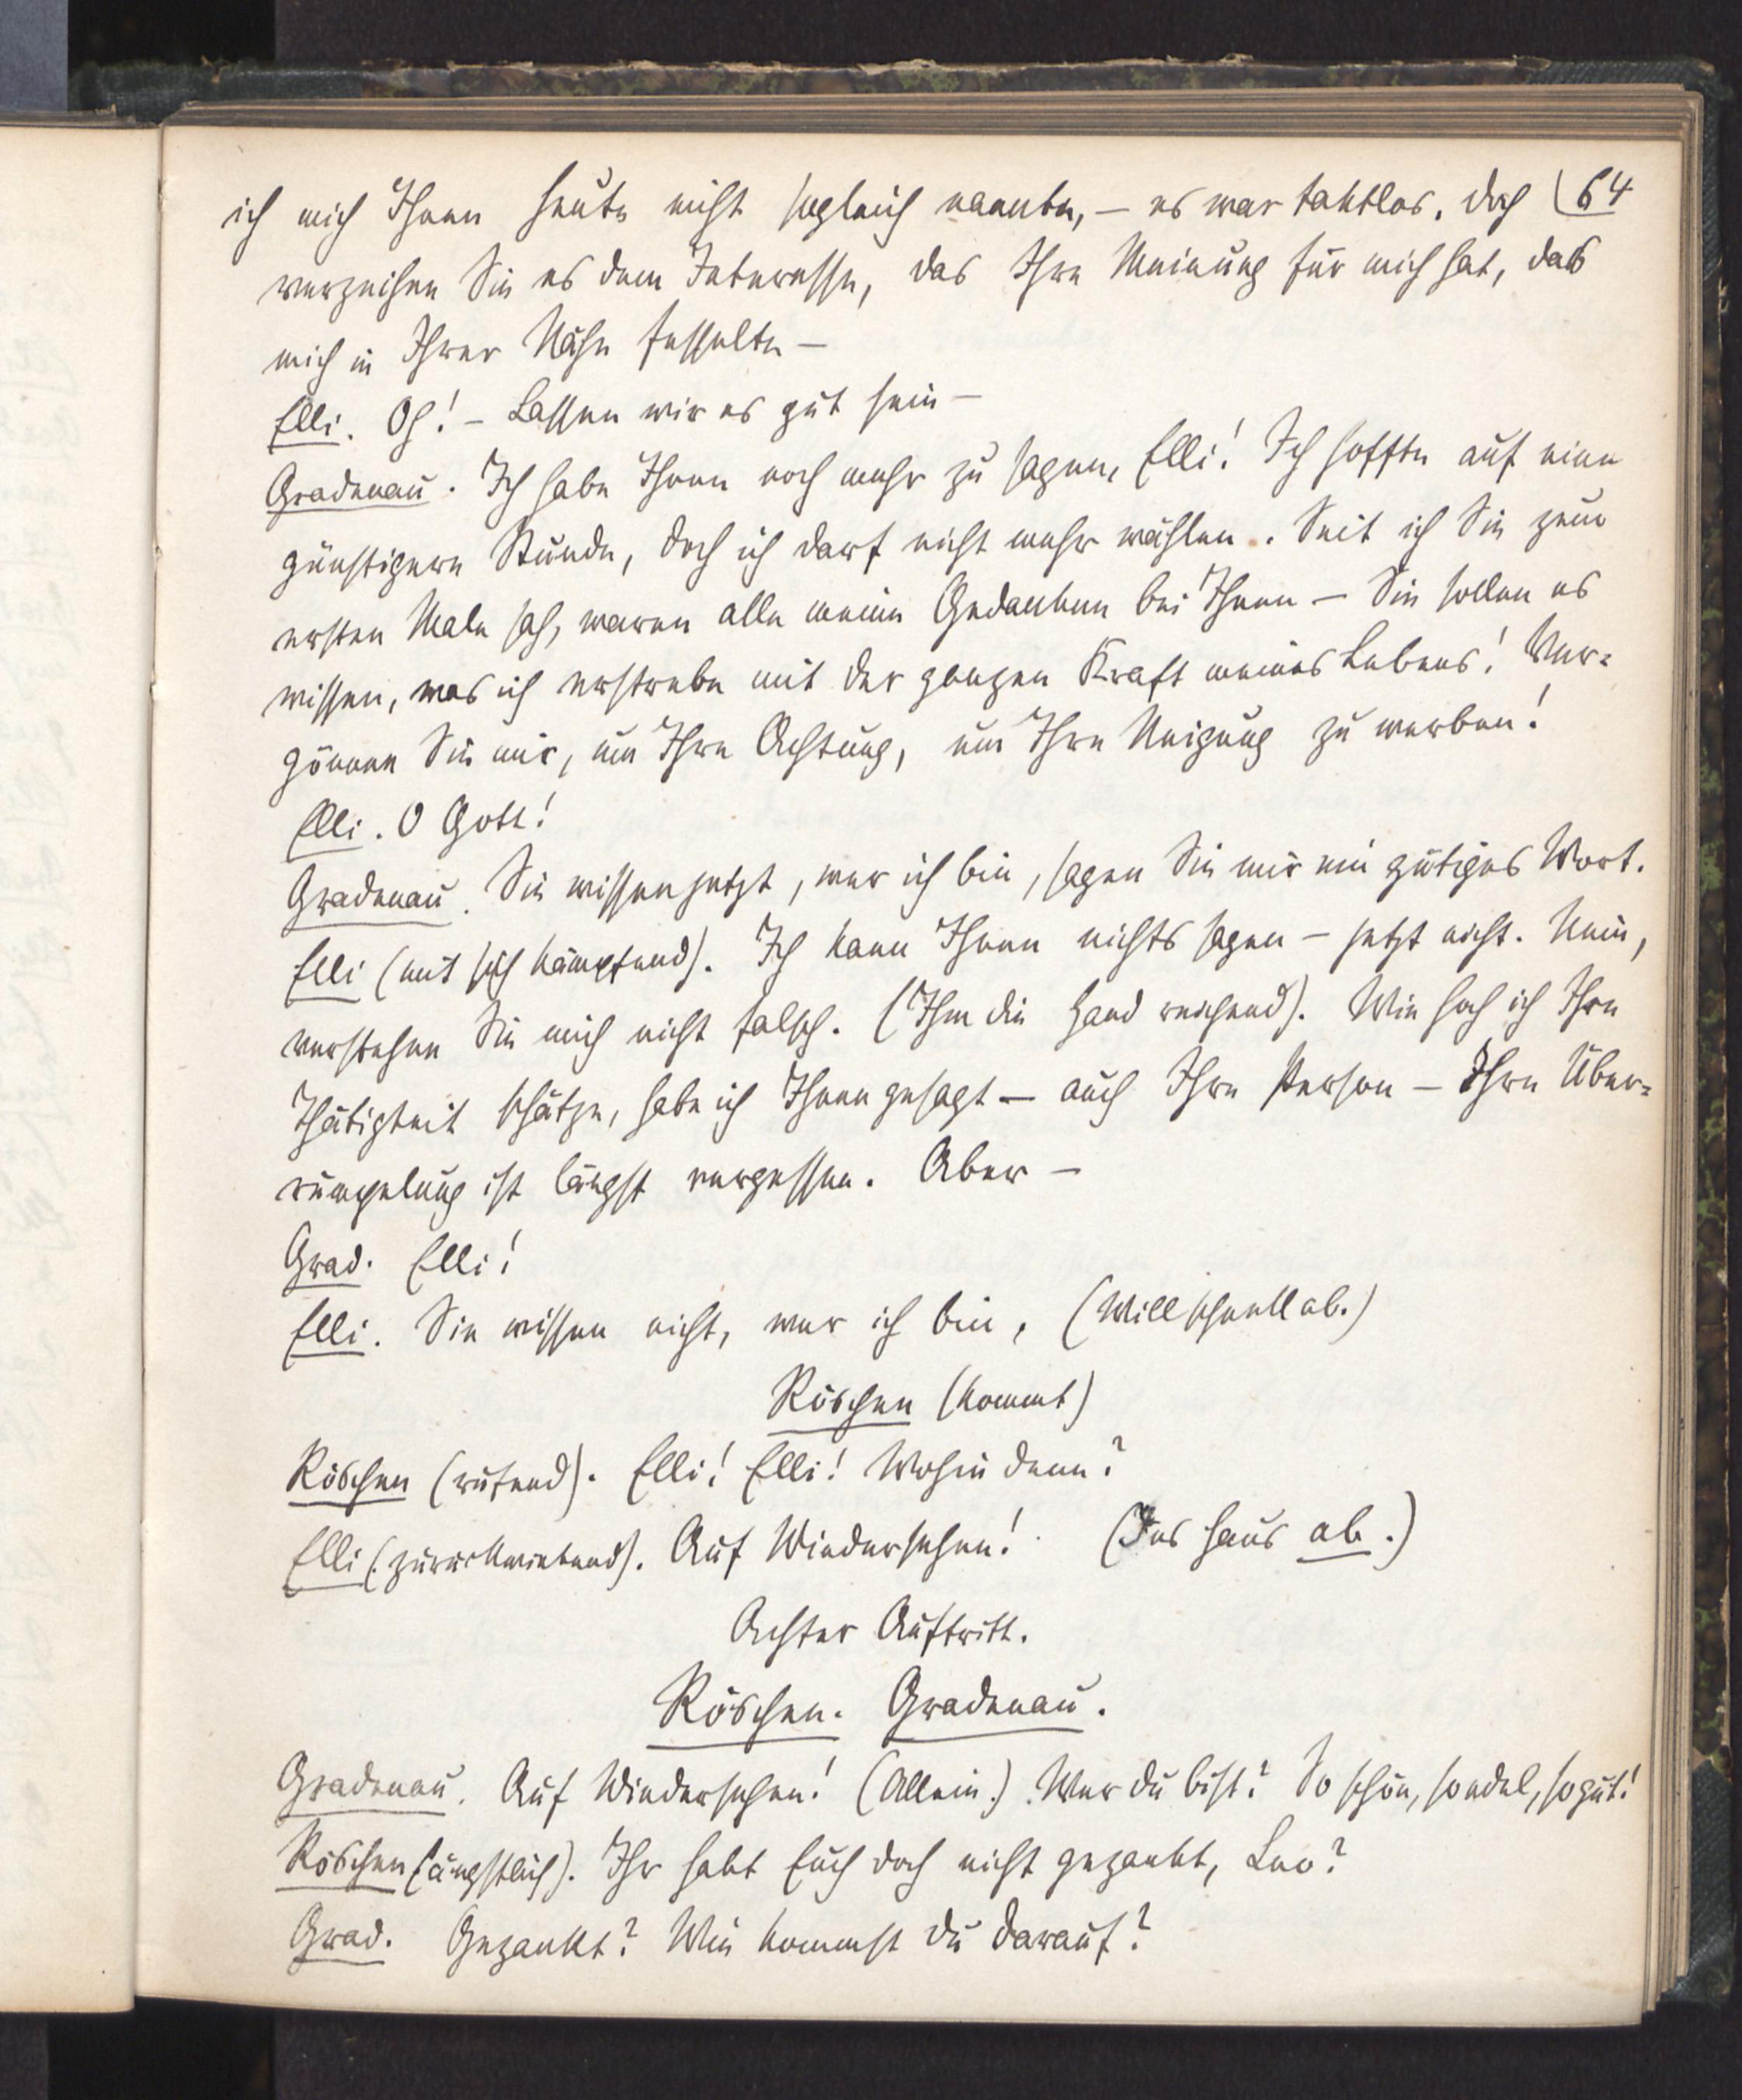 ich mich Ihnen heute nicht sogleich nannte, — es war taktlos. Doch 64
verzeihen Sie es dem Interesse, das Ihre Meinung für mich hat, das
mich in Ihrer Nähe fesselte —
Elli. Oh! — Lassen wir es gut sein —
Gradenau. Ich habe Ihnen noch mehr zu sagen, Elli! Ich hoffte auf eine
günstigere Stunde, doch ich darf nicht mehr wählen. Seit ich Sie zum
ersten Male sah, waren alle meine Gedanken bei Ihnen — Sie sollen es
wissen, was ich erstrebe mit der ganzen Kraft meines Lebens! Ver-
gönnen Sie mir, um Ihre Achtung, um Ihre Neigung zu werben!
Elli. O Gott!
Gradenau. Sie wissen jetzt, wer ich bin, sagen Sie mir ein gütiges Wort.
Elli (mit sich kämpfend). Ich kann Ihnen nichts sagen — jetzt nicht. Nein,
verstehen Sie mich nicht falsch. (Ihm die Hand reichend). Wie hoch ich Ihre
Thätigkeit schätze, habe ich Ihnen gesagt — auch Ihre Person — Ihre Über-
rumpelung ist längst vergessen. Aber —
Grad. Elli!
Elli. Sie wissen nicht, wer ich bin, (Will schnell ab.)
Röschen (kommt)
Röschen (rufend). Elli! Elli! Wohin denn?
Elli (zurückwinkend). Auf Wiedersehen! (Ins Haus ab.)
Achter Auftritt.
Röschen. Gradenau.
Gradenau. Auf Wiedersehen! (Allein.) Wer du bist? So schön, so edel, so gut!
Röschen (ängstlich). Ihr habt Euch doch nicht gezankt, Leo?
Grad. Gezankt? Wie kommst du darauf?